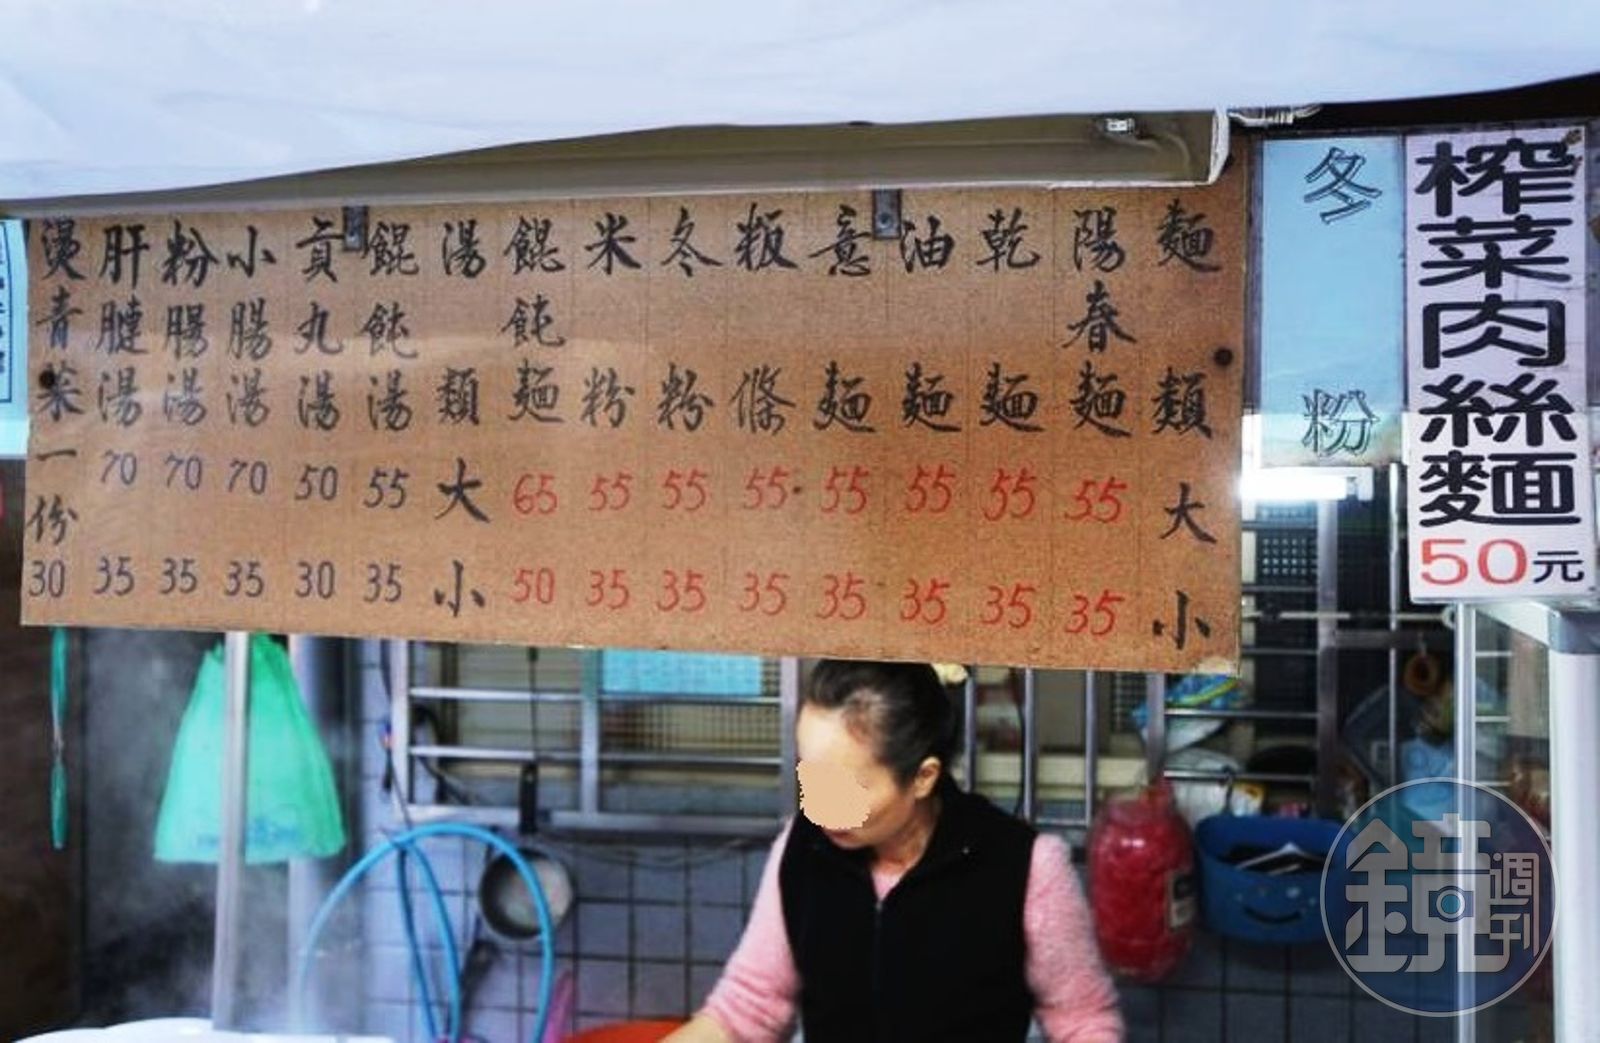 麵類 大 小
陽春麵 55 35
乾麵 55 35
油麵 55 35
意麵 55 35
粄條 55 35
冬粉 55 35
米粉 55 35
餛飩麵 65 50
湯類 大 小
餛飩湯 55 35
貢丸湯 50 30
小腸湯 70 35
粉腸湯 70 35
肝腱湯 70 35
燙青菜一份 30
冬粉
榨菜肉絲麵
50元
鏡週刊